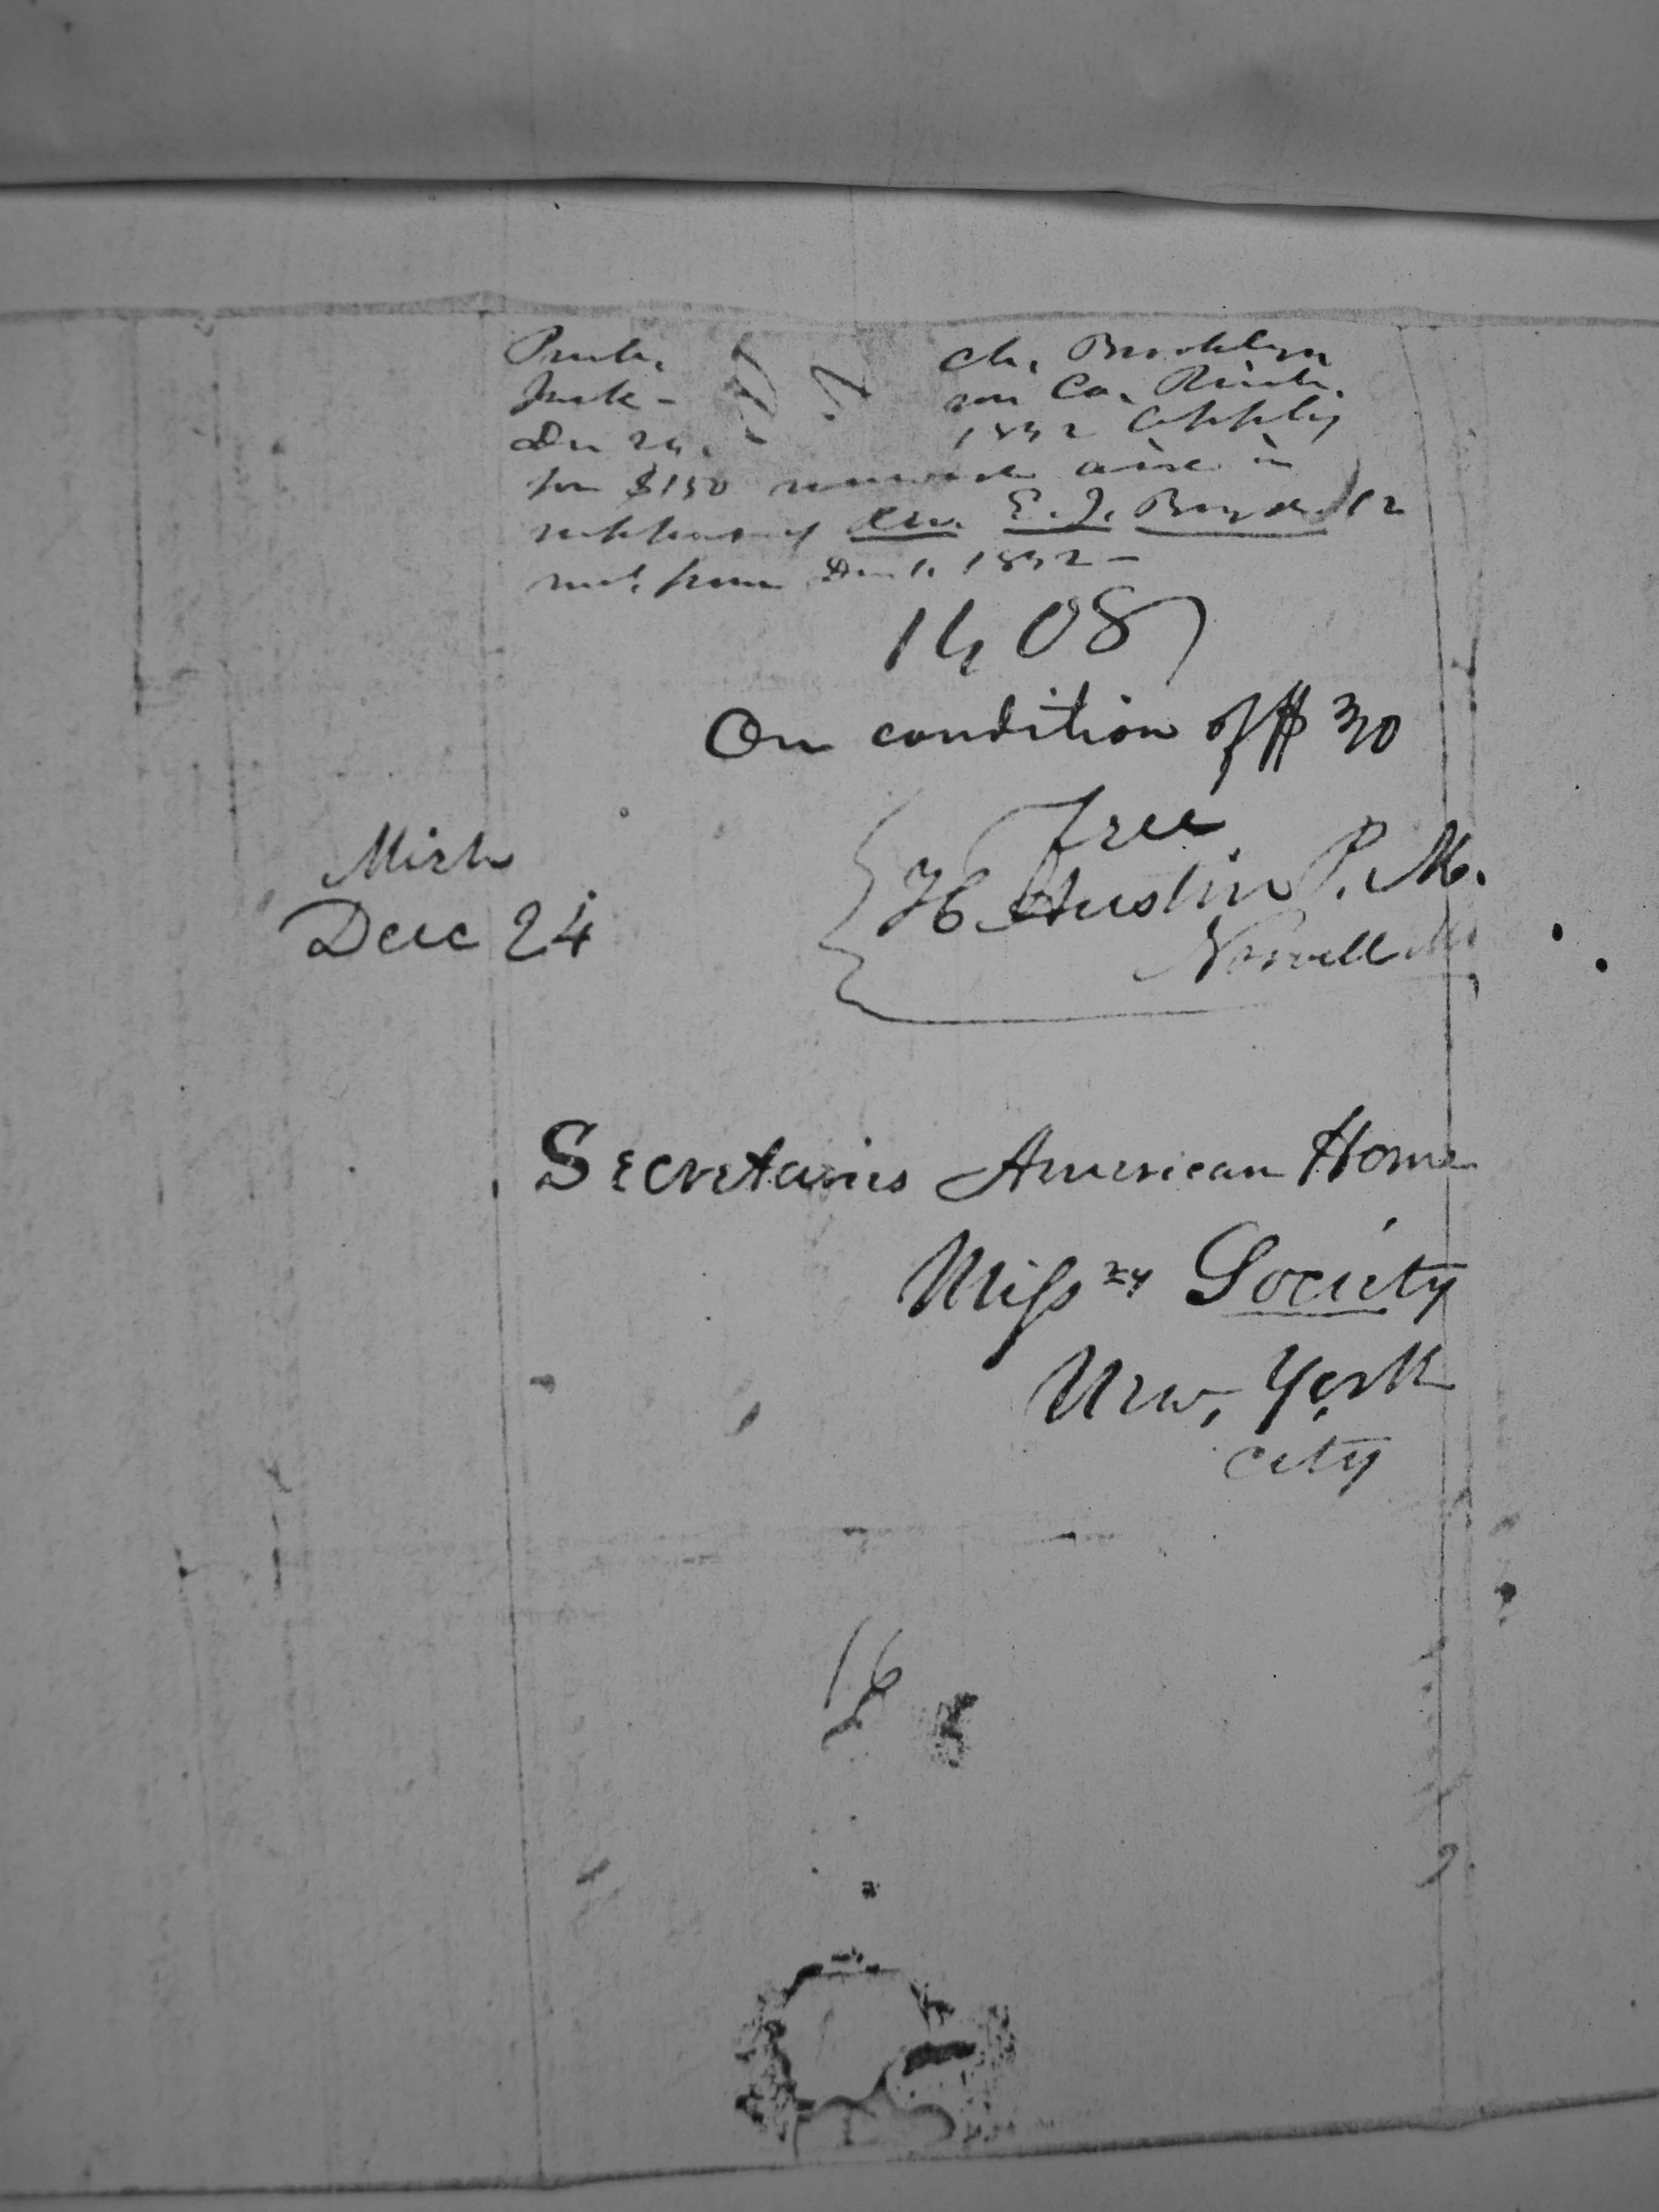 Presb. ch. Brooklyn
Jack- son Co. Mich.
Dec 24. 1842 Apply
for $150 renewed aid in
support of Rev. E. J. Boyd 12
mos. from Dec 1. 1842 -
1408
On condition of $ 30
Mich
Deec 24
Free
H Austin P. M.
Norvell Mi
Secretaries American Home
Missry Society
New, York
city
16